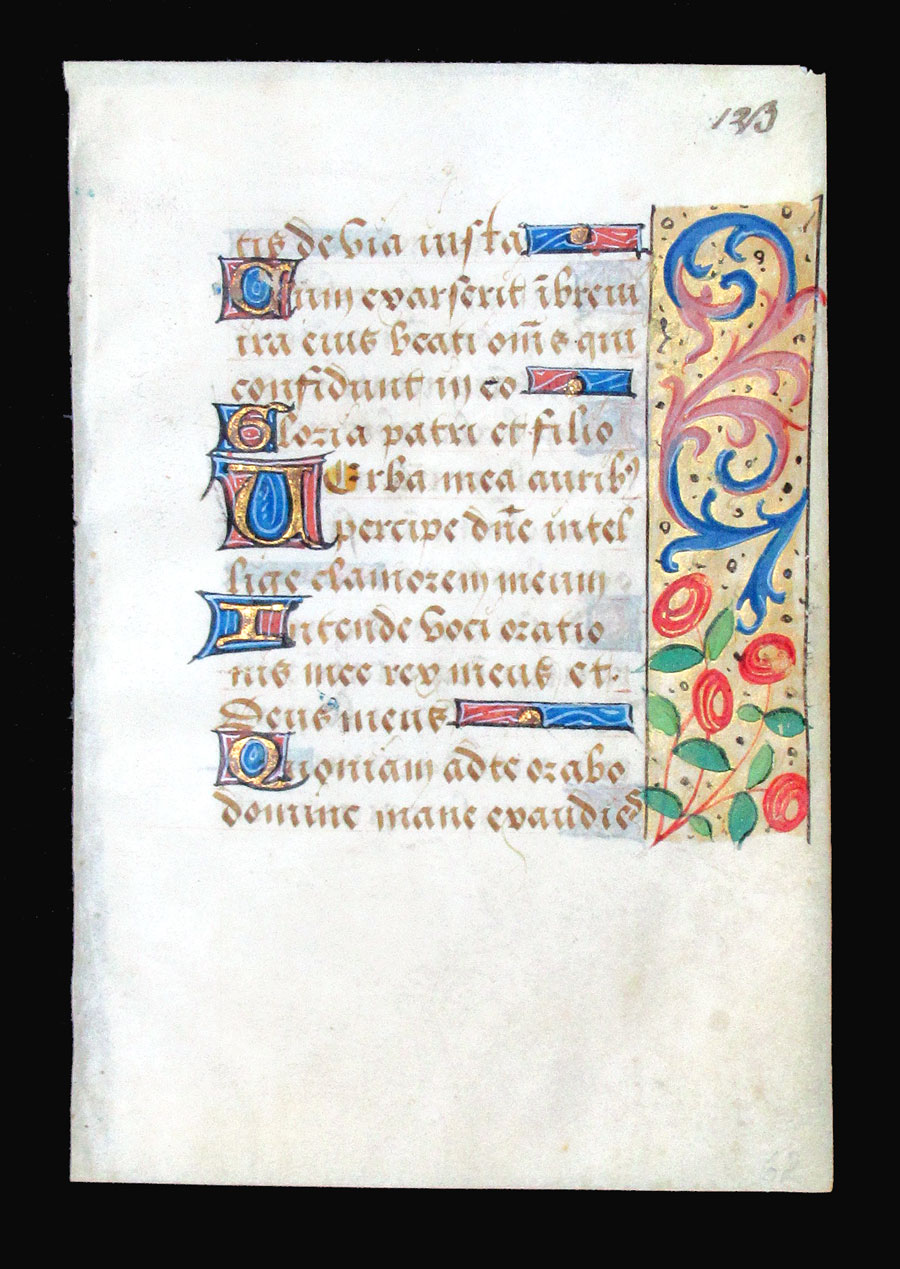 123
tis de via iusta
Cum exarserit ībreui
ira eius beati om̄s qui
confidunt in eo
Gloria patri et filio
VErba mea aurib9
percipe dn̄e intel
lige clamorem meum
Intende voci oratio
nis mee rex meus et
Deus meus
Quoniam ad te orabo
domine mane exaudies
62